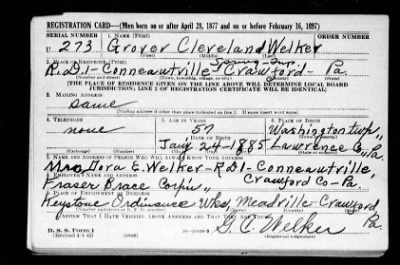 REGISTRATION CARD—(Men born on or after April 28, 1877 and on or before February 16, 1897)
SERIAL NUMBER 1. NAME (Print)
U 273 Grover Cleveland Welker
2. PLACE OF RESIDENCE (Print)
Spring-Twp.
R.D.1-Conneautville-Crawford-Pa.
(THE PLACE OF RESIDENCE GIVEN ON THE LINE ABOVE WILL DETERMINE LOCAL BOARD
JURISDICTION; LINE 2 OF REGISTRATION CERTIFICATE WILL BE IDENTICAL)
3. MAILING ADDRESS
same
(Mailing address if other than place indicated on line 2. If same insert word same)
4. TELEPHONE 5. AGE IN YEARS 6. PLACE OF BIRTH
none 57 Washington twp,
DATE OF BIRTH
Jan 24-1885 Lawrence Co, Pa.
7. NAME AND ADDRESS OF PERSON WHO WILL ALWAYS KNOW YOUR ADDRESS
Mrs Dora E. Welker-RD1-Conneautville,
8. EMPLOYER'S NAME AND ADDRESS
Crawford Co-Pa.
Fraser Brace Corpin,,
9. PLACE OF EMPLOYMENT OR BUSINESS
Keystone Ordinance Wks, Meadville-Crawford
Pa.
I AFFIRM THAT I HAVE VERIFIED ABOVE ANSWERS AND THAT THEY ARE TRUE.
D. S. S. Form 1
(Revised 4-1-42) (over)
G.C. Welker
(Registrant's signature)